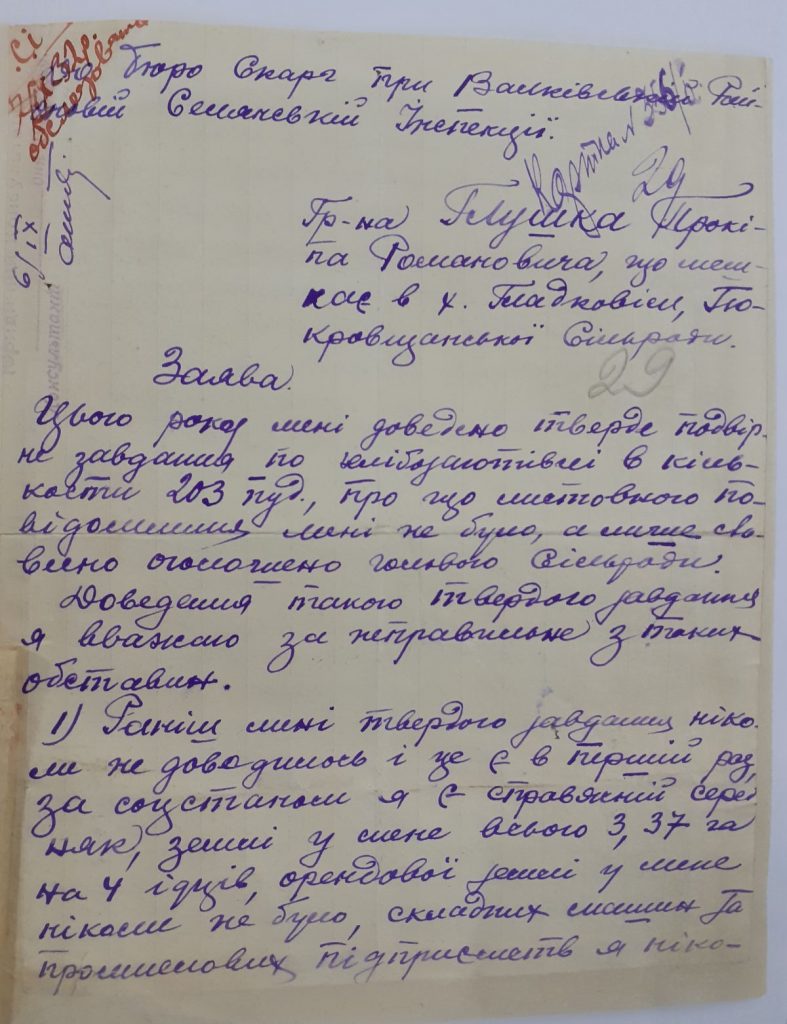 бюро Скарг при Валківській Рай-
оновій Селянській Інспекції.
29
Гр-на Глушка Прокі-
па Романовича, що меш-
кає в х. Гладковім, По-
кровщанської Сільради.
29
Заява.
Цього року мені доведено тверде подвір-
не завдання по хлібозаготівлі в кіль-
кости 203 пуд., про що листовного по-
відомлення мені не було, а лише сло-
весно оголошено головою Сільради.
Доведення такого твердого завдання
я вважаю за неправильне з таких
обставин.
1) Раніш мені твердого завдання ніко-
ли не доводилось і це є в перший раз,
за соцстаном я є справжній серед
няк, землі у мене всього 3,37 га
на 4 їдців, орендової землі у мене
ніколи не було, складних машин та
промислових підприємств я ніко-
6/IX